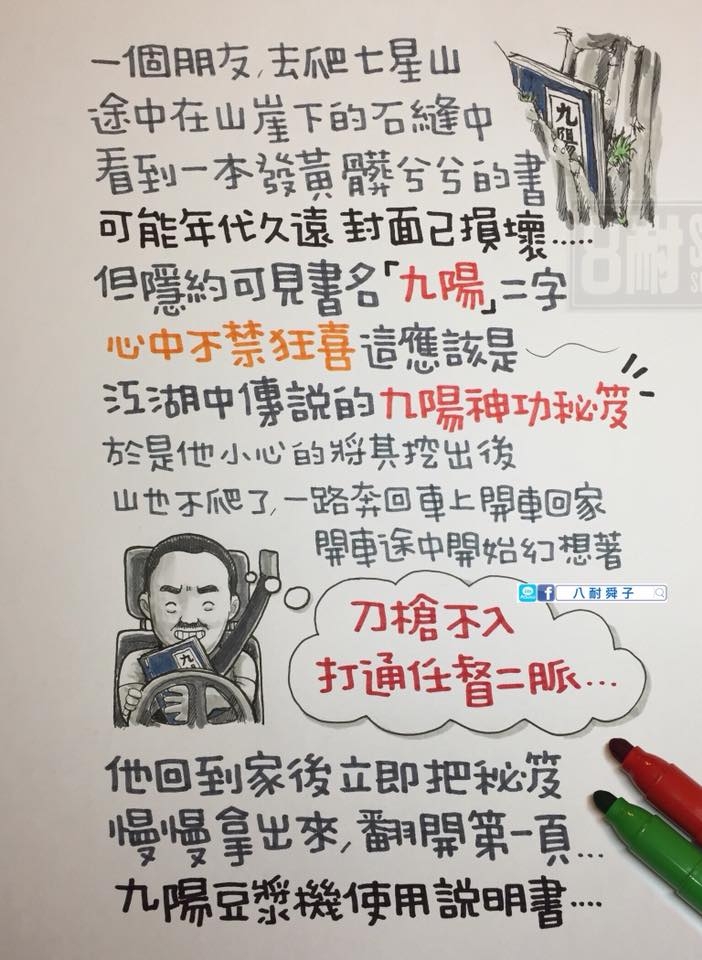 一個朋友,去爬七星山
途中在山崖下的石縫中
看到一本發黃髒兮兮的書
九陽
可能年代久遠 封面已損壞.....
但隱約可見書名「九陽」二字
心中不禁狂喜 這應該是
江湖中傳說的九陽神功秘笈
於是他小心的將其挖出後
山也不爬了,一路奔回車上開車回家
開車途中開始幻想著
八耐舜子
刀槍不入
打通任督二脈...
九
他回到家後立即把秘笈
慢慢拿出來,翻開第一頁...
九陽豆漿機使用說明書....